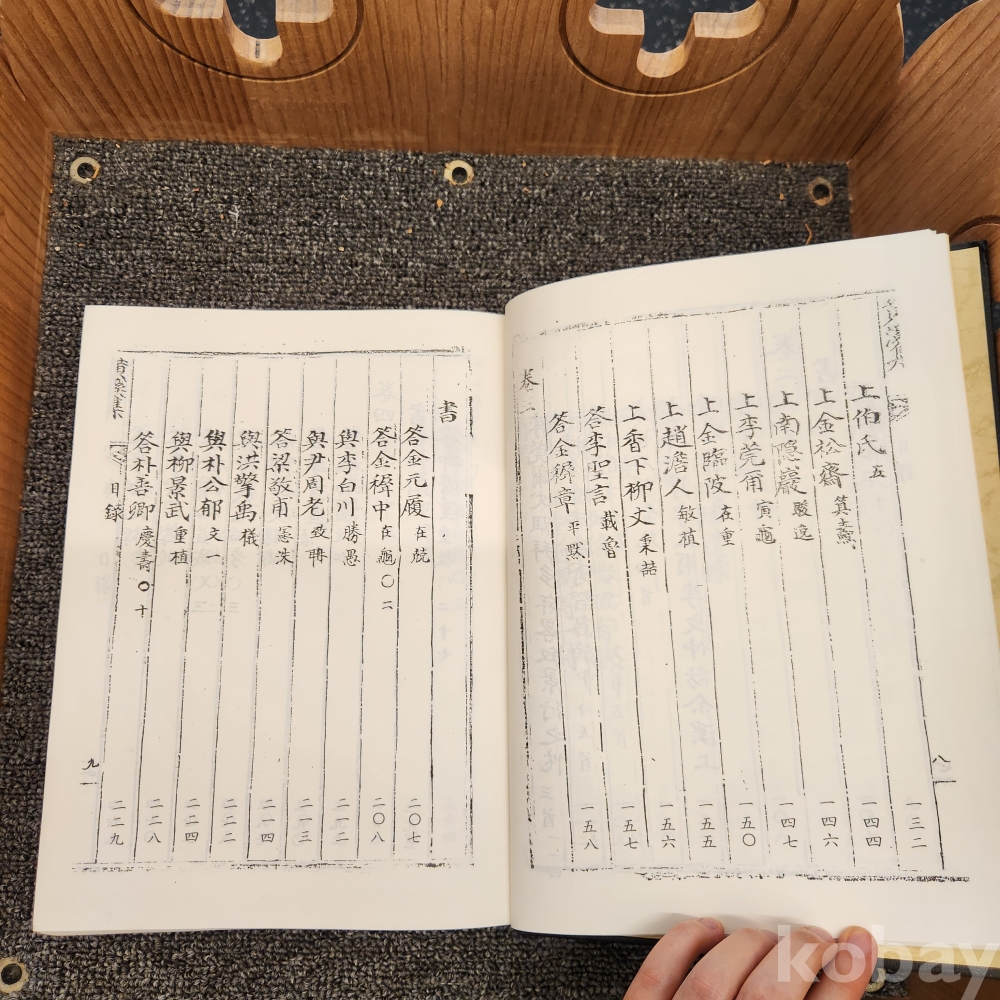 八
上伯氏 五 一三二
上金松齋 一四四
上南隠巖 駿逸 一四六
上李莞甫 寅龜 一四七
上金臨陂 在重 一五〇
上趙澹人 敏植 一五五
上香下柳丈 秉喆 一五六
答李聖言 載魯 一五七
答金穉章 平默 一五八
卷二
書
答金元履 在 二〇七
答金穉中 在龜〇二 二〇八
與李白川 勝愚 二一二
與尹周老 致聃 二一三
答梁敬甫 憲洙 二一四
與洪擎禹 檥 二二二
與朴公郁 文一 二二四
與柳景武 重植 二二八
答朴善卿 慶壽〇十 二二九
集 目錄 九
kobay